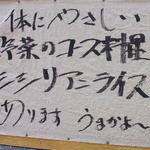 体にやさしい
野菜のコース料理
シシリアンライス
あります うまかよ〜